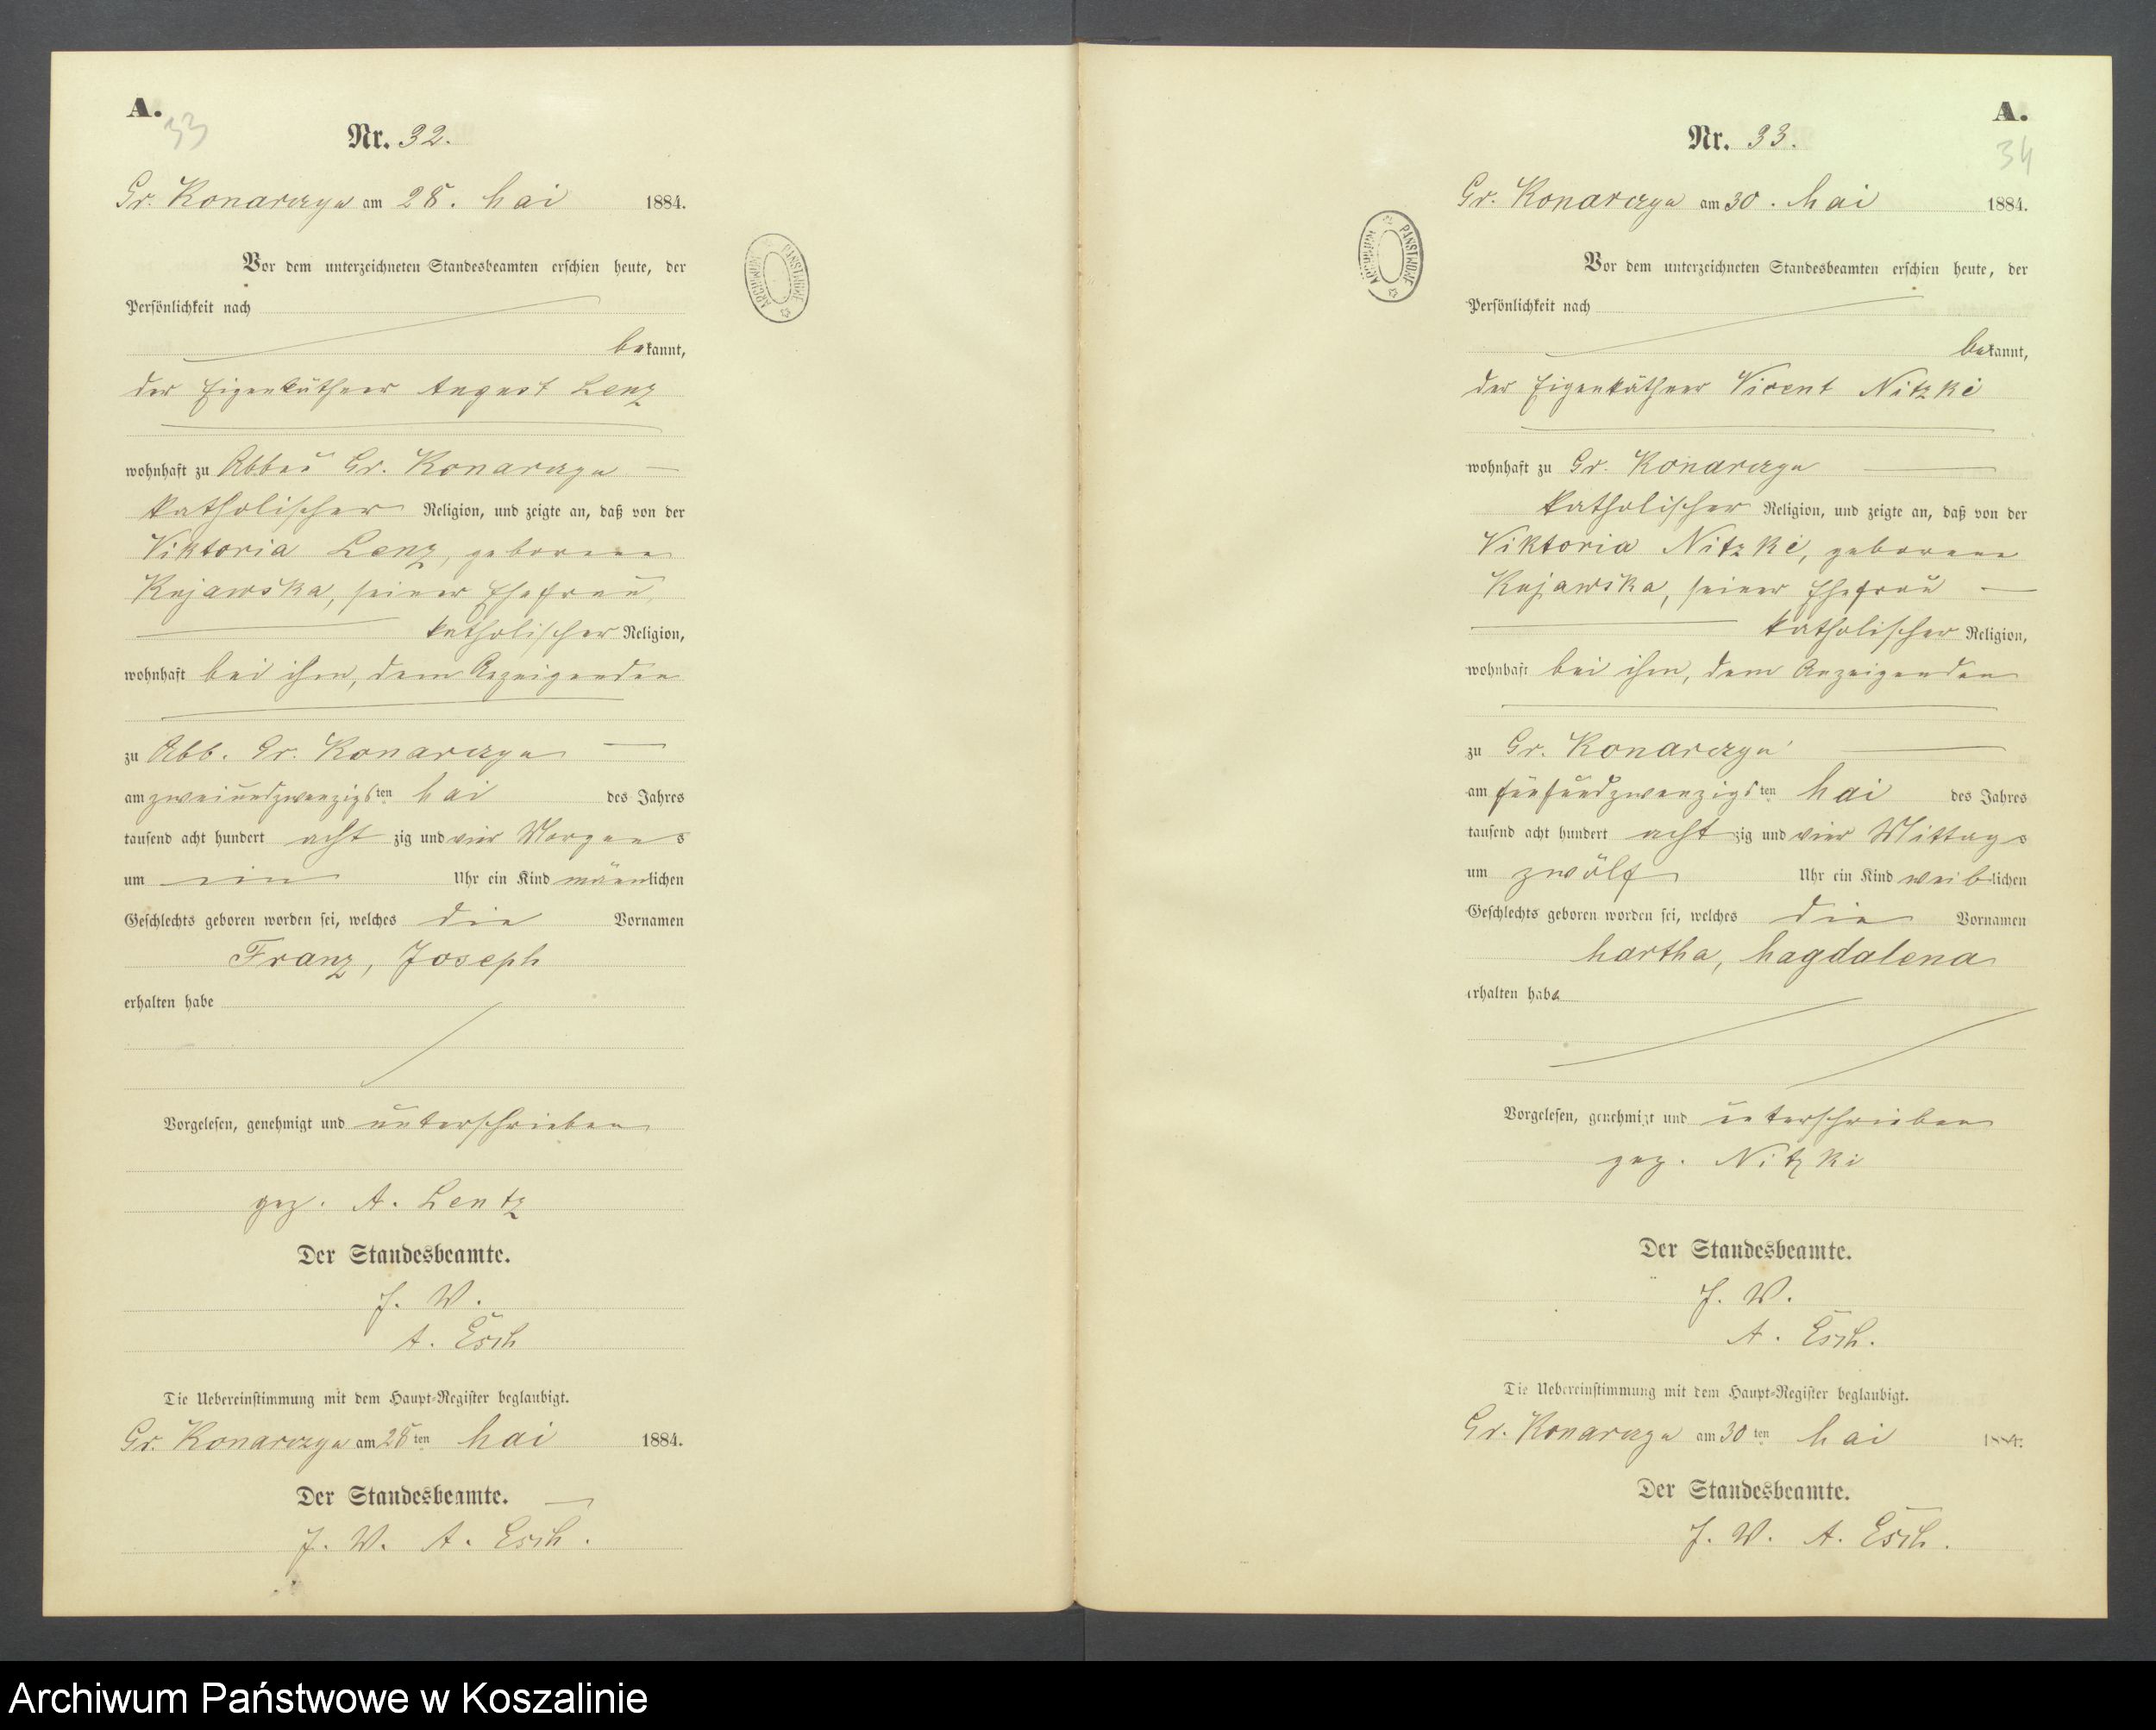 A.
33
Nr. 32.
Gr. Konarczyn am 28. Mai 1884.
Vor dem unterzeichneten Standesbeamten erschien heute, der
Persönlichkeit nach
bekannt,
der Eigenkäthner August Lenz
wohnhaft zu Abbau Gr. Konarczyn
katholischer Religion, und zeigte an, daß von der
Viktoria Lenz, geborene
Kujawska, seiner Ehefrau,
katholischer Religion,
wohnhaft bei ihm, dem Anzeigenden
zu Abb. Gr. Konarczyn
am zweiundzwanzigsten Mai des Jahres
tausend acht hundert acht zig und vier Morgens
um ein Uhr ein Kind männlichen
Geschlechts geboren worden sei, welches die Vornamen
Franz, Joseph
erhalten habe
Vorgelesen, genehmigt und unterschrieben
gez. A. Lentz
Der Standesbeamte.
J. V.
A. Esch
Die Uebereinstimmung mit dem Haupt-Register beglaubigt.
Gr. Konarczyn am 28ten Mai 1884.
Der Standesbeamte.
J. V. A. Esch.
ARCHIWUM PAŃSTWOWE
A.
34
Nr. 33.
Gr. Konarczyn am 30. Mai 1884.
Vor dem unterzeichneten Standesbeamten erschien heute, der
Persönlichkeit nach
bekannt,
der Eigenkäthner Vicent Nitzki
wohnhaft zu Gr. Konarczyn
katholischer Religion, und zeigte an, daß von der
Viktoria Nitzki, geborene
Kujawska, seiner Ehefrau
katholischer Religion,
wohnhaft bei ihm, dem Anzeigenden
zu Gr. Konarczyn
am fünfundzwanzigsten Mai des Jahres
tausend acht hundert acht zig und vier Mittags
um zwölf Uhr ein Kind weiblichen
Geschlechts geboren worden sei, welches die Vornamen
Martha, Magdalena
erhalten habe
Vorgelesen, genehmigt und unterschrieben
gez. Nitzki
Der Standesbeamte.
J. V.
A. Esch.
Die Uebereinstimmung mit dem Haupt-Register beglaubigt.
Gr. Konarczyn am 30ten Mai 1884.
Der Standesbeamte.
J. V. A. Esch.
ARCHIWUM PAŃSTWOWE
Archiwum Państwowe w Koszalinie